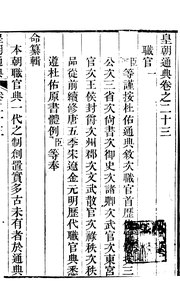 皇朝通典卷之二十三
職官一
臣等謹按杜佑通典敘次職官首歷
公次三省次尙書次御史次諸卿次武官次東宮
官次王侯封爵次州郡次文武散官次祿秩次秩
品從前續修唐五季宋遼金元明歷代職官典悉
遵杜佑原書體例臣等奉
命纂輯
本朝職官典一代之制創置實多古未有者於通典